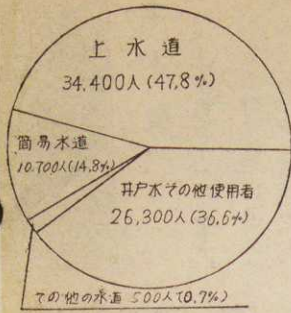 上水道
34,400人(47.8%)
簡易水道
10.700人(14.8%)
井戸水その他使用者
26,300人(36.6%)
その他の水道 500人(0.7%)